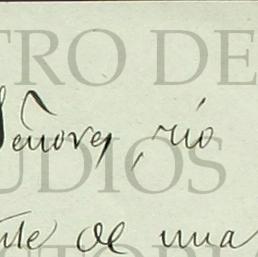 TRO DE
Señores, rio
UDIOS
nte de una